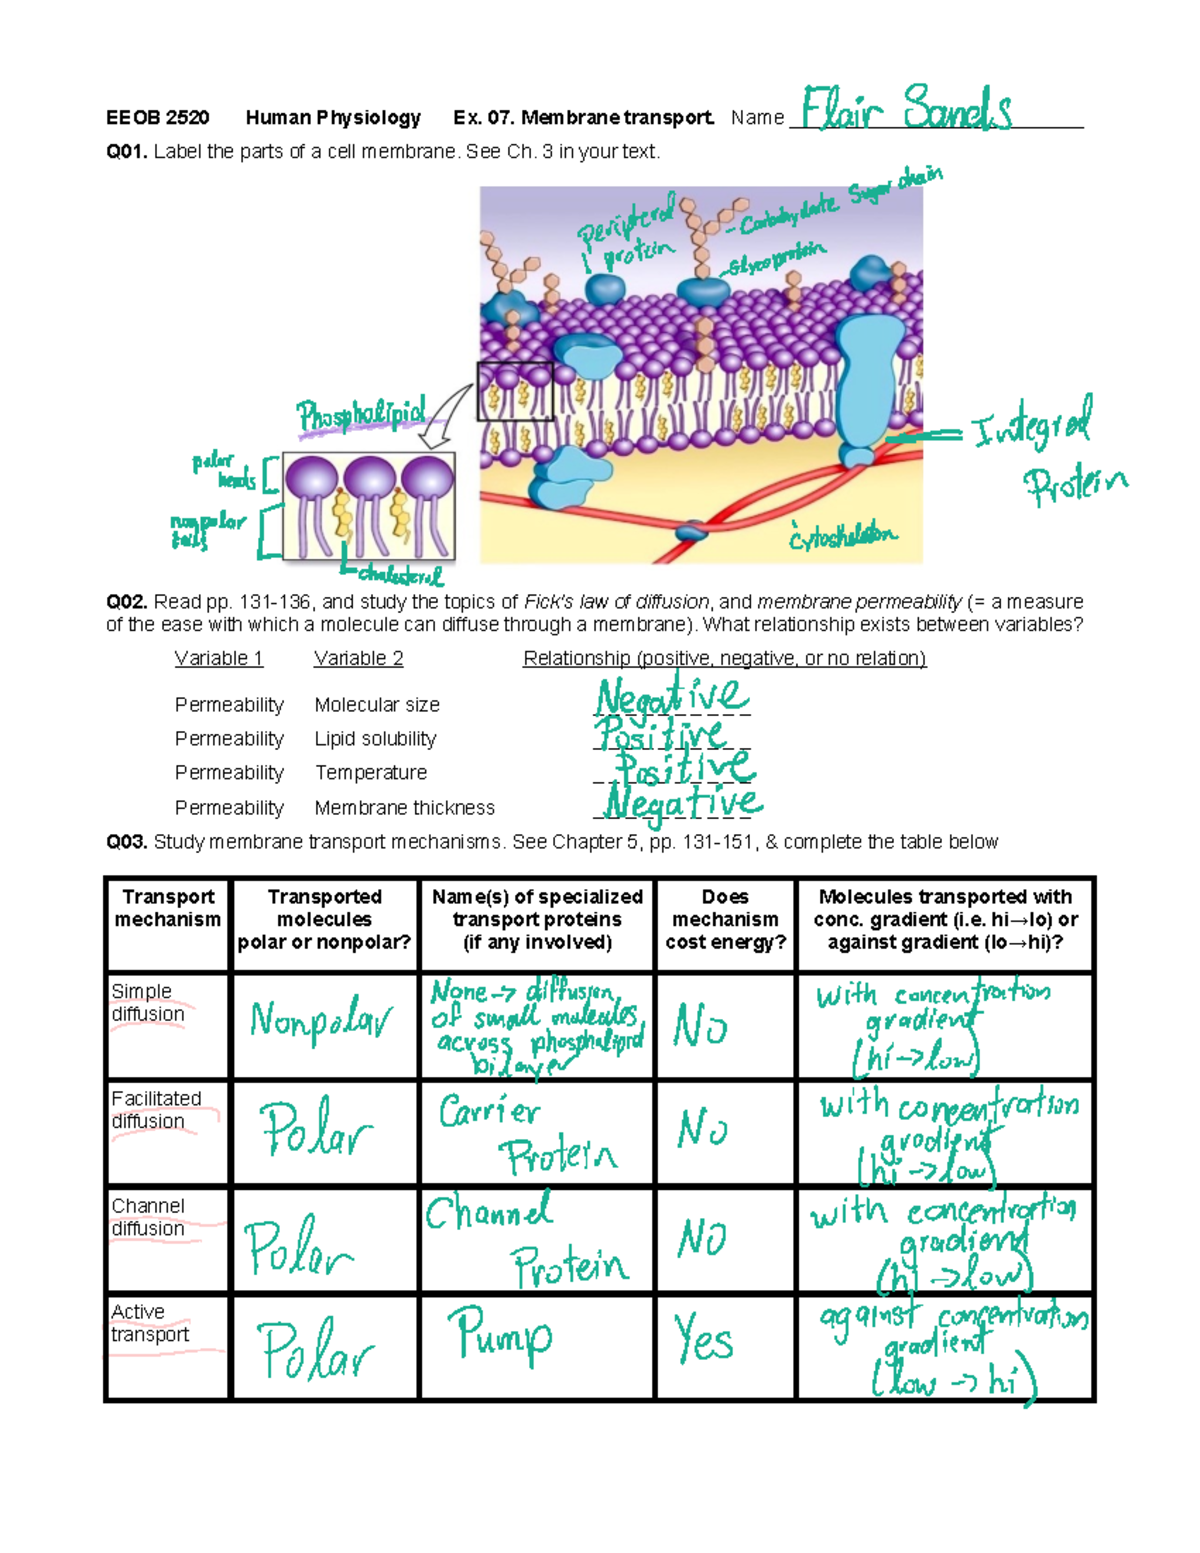 EEOB 2520 Human Physiology Ex. 07. Membrane transport. Name Flair Sands
Q01. Label the parts of a cell membrane. See Ch. 3 in your text.
Peripheral
protein
- Carbohydrate Sugar chain
- Glycoprotein
Phospholipid
polar
heads
nonpolar
tails
cholesterol
Integral
Protein
cytoskeleton
Q02. Read pp. 131-136, and study the topics of Fick's law of diffusion, and membrane permeability (= a measure
of the ease with which a molecule can diffuse through a membrane). What relationship exists between variables?
Variable 1 Variable 2 Relationship (positive, negative, or no relation)
Permeability Molecular size Negative
Permeability Lipid solubility Positive
Permeability Temperature Positive
Permeability Membrane thickness Negative
Q03. Study membrane transport mechanisms. See Chapter 5, pp. 131-151, & complete the table below
Transport
mechanism
Transported
molecules
polar or nonpolar?
Name(s) of specialized
transport proteins
(if any involved)
Does
mechanism
cost energy?
Molecules transported with
conc. gradient (i.e. hi→lo) or
against gradient (lo→hi)?
Simple
diffusion
Nonpolar
None → diffusion
of small molecules
across phospholipid
bilayer
No
with concentration
gradient
(hi → low)
Facilitated
diffusion
Polar
Carrier
Protein
No
with concentration
gradient
(hi → low)
Channel
diffusion
Polar
Channel
Protein
No
with concentration
gradient
(hi → low)
Active
transport
Polar
Pump
Yes
against concentration
gradient
(low → hi)